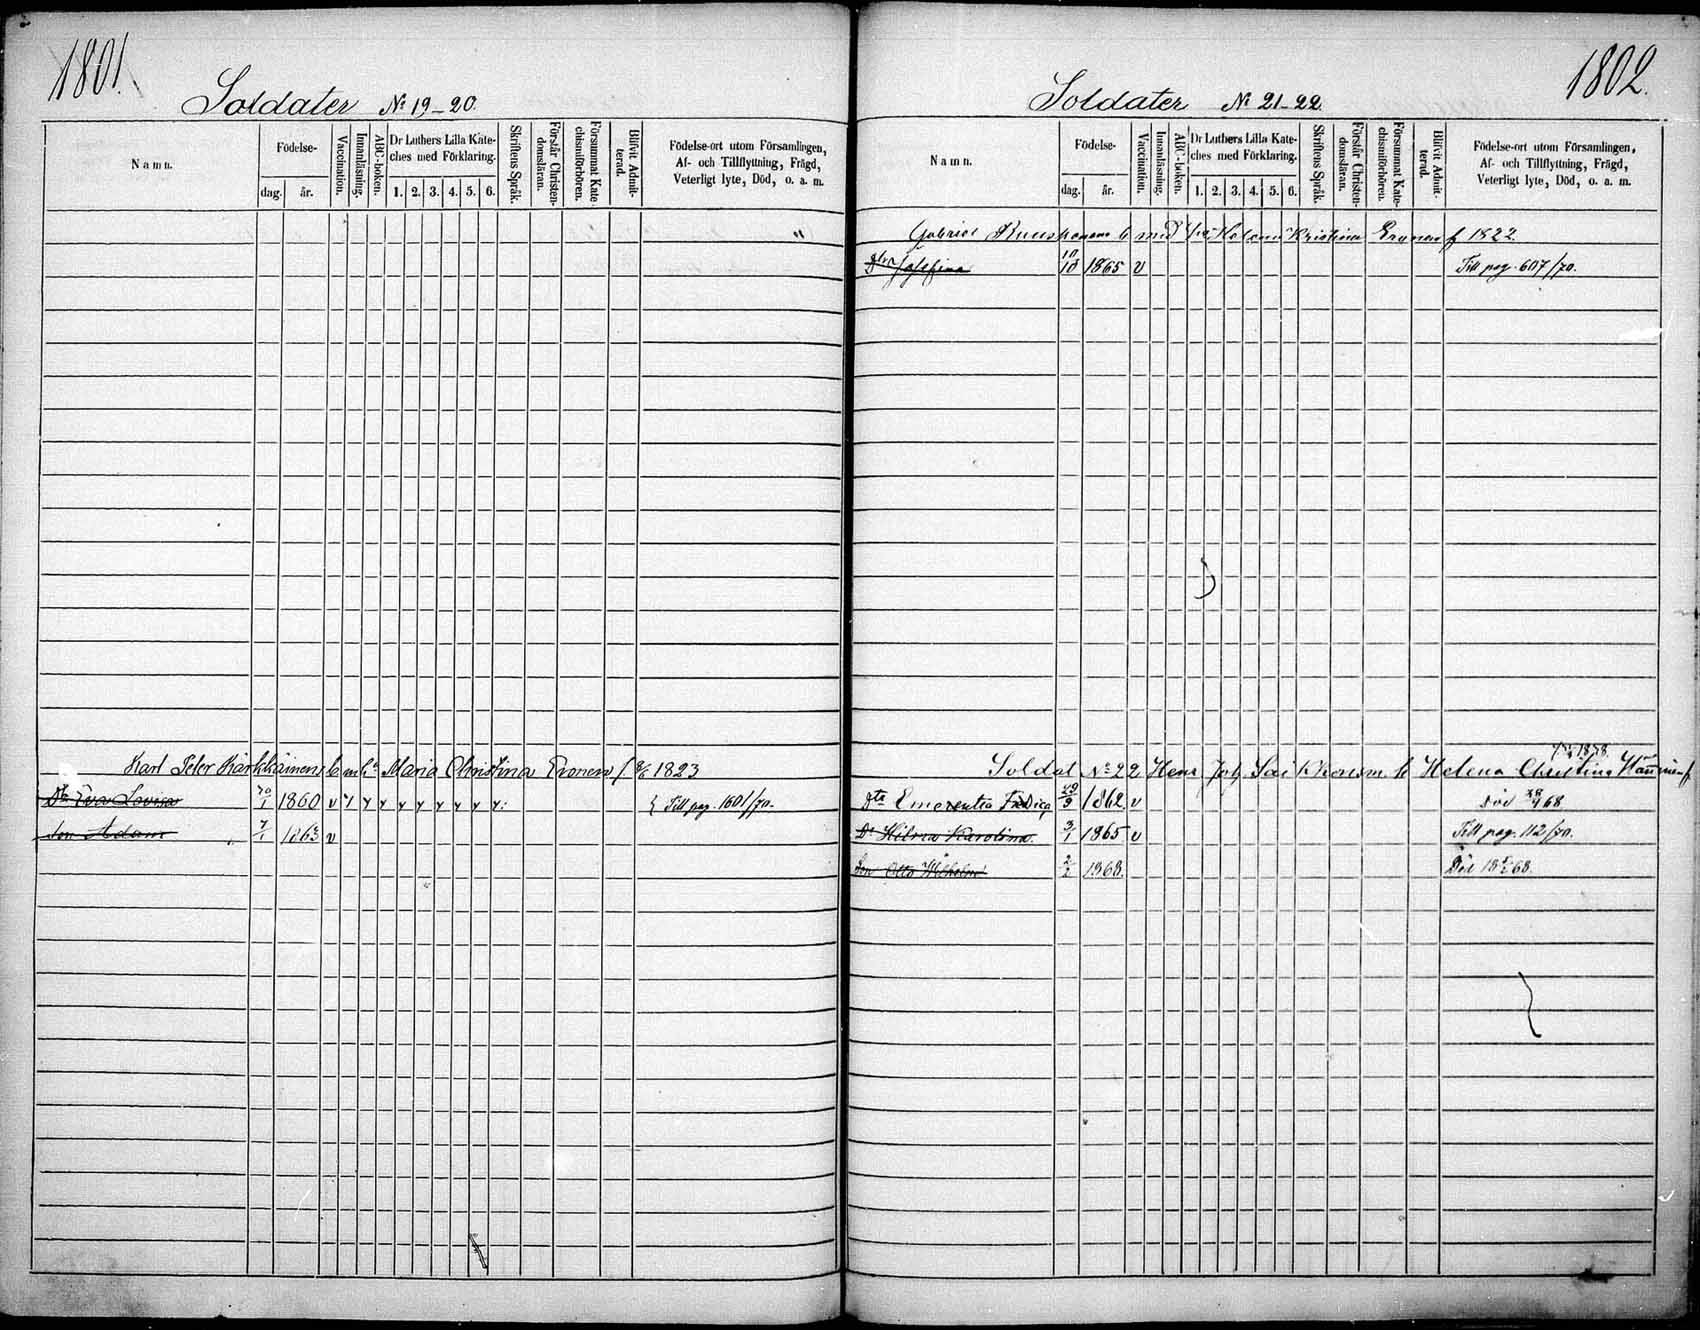 1801.
Soldater № 19–20.
Namn.
Födelse-
dag. år.
Vaccination.
Innanläsning.
ABC-boken.
Dr Luthers Lilla Kate-
ches med Förklaring.
1. 2. 3. 4. 5. 6.
Skriftens Språk.
Förstår Christen-
domsläran.
Försummat Kate-
chismiförhören.
Blifvit Admit-
terad.
Födelse-ort utom Församlingen,
Af- och Tillflyttning, Frägd,
Veterligt lyte, Död, o. a. m.
"
Karl Peter Kärkkäinens b m h Maria Christina Pronen f 1823
Dtr Eva Lovisa 1860 v y y y y y y y y Till pag. 1601/70.
Son Adam 7/1 1863 v
1802.
Soldater № 21–22
Namn.
Födelse-
dag. år.
Vaccination.
Innanläsning.
ABC-boken.
Dr Luthers Lilla Kate-
ches med Förklaring.
1. 2. 3. 4. 5. 6.
Skriftens Språk.
Förstår Christen-
domsläran.
Försummat Kate-
chismiförhören.
Blifvit Admit-
terad.
Födelse-ort utom Församlingen,
Af- och Tillflyttning, Frägd,
Veterligt lyte, Död, o. a. m.
Gabriel b med Helena Kristina f 1822.
Dtr Josefina 10/10 1865 v Till pag. 607/70.
1838
Soldat № 22 Henr Joh m h Helena Christina
Dtr Emerentia 29/9 1862 v Död 68
Dr Hilma Karolina. 3/1 1865 v Till pag. 112/70.
Son Otto Wilhelm 2/2 1868. Död 68.